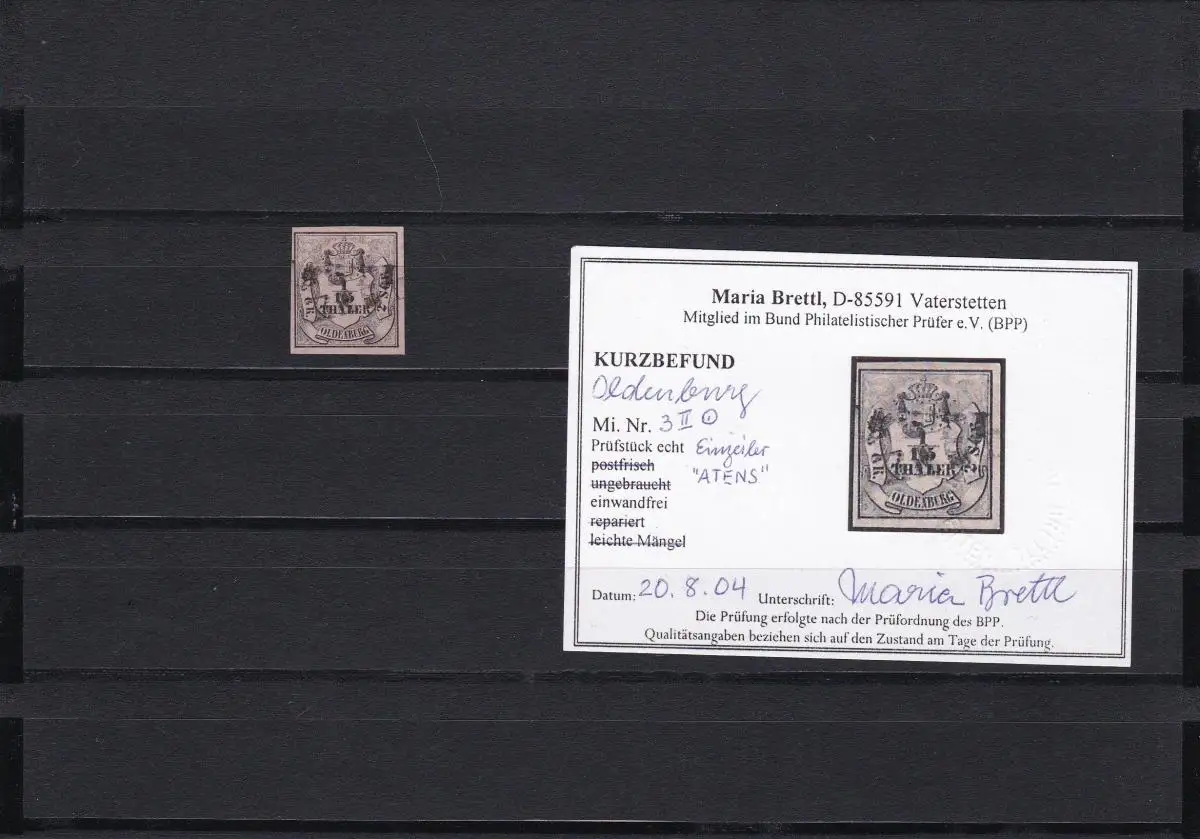 1/15
THALER
2 GR.
2 SGR.
OLDENBURG
Maria Brettl, D-85591 Vaterstetten
Mitglied im Bund Philatelistischer Prüfer e.V. (BPP)
KURZBEFUND
Oldenburg
Mi. Nr. 3 II
Prüfstück echt Einzeiler
postfrisch "ATENS"
ungebraucht
einwandfrei
repariert
leichte Mängel
1/15
THALER
OLDENBURG
Datum: 20.8.04 Unterschrift: Maria Brettl
Die Prüfung erfolgte nach der Prüfordnung des BPP.
Qualitätsangaben beziehen sich auf den Zustand am Tage der Prüfung.